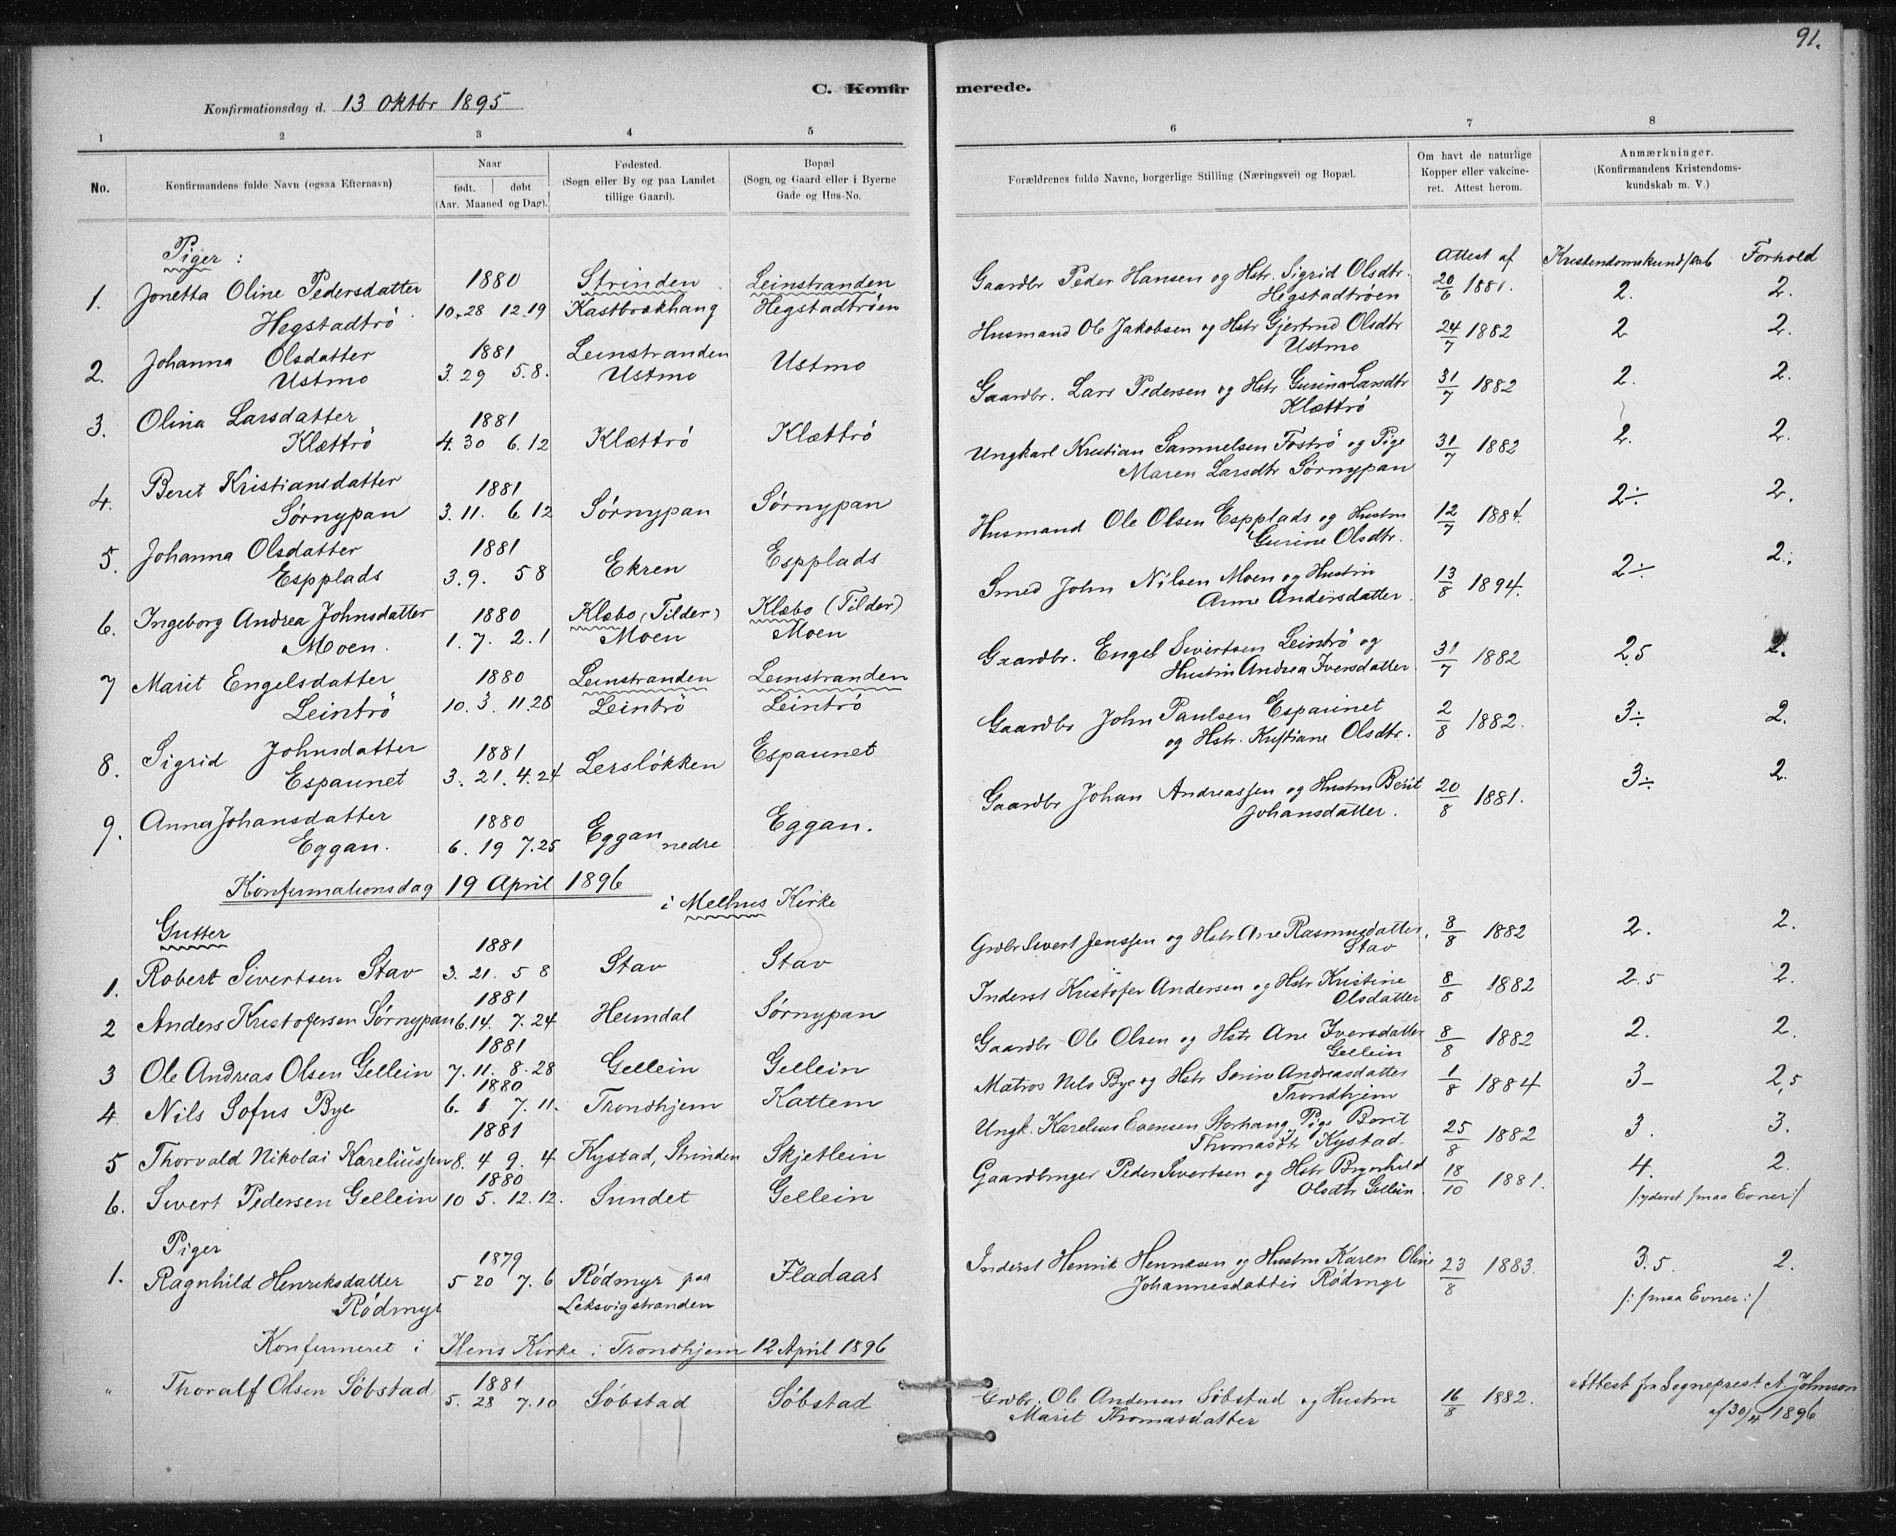 91.
C. Konfirmerede.
Konfirmationsdag d. 13 Oktbr 1895
1 2 3 4 5 6 7 8
No.
Konfirmandens fulde Navn (ogsaa Efternavn)
Naar
født. døbt
(Aar. Maaned og Dag).
Fødested.
(Sogn eller By og paa Landet
tillige Gaard).
Bopæl
(Sogn og Gaard eller i Byerne
Gade og Hus-No.
Forældrenes fulde Navne, borgerlige Stilling (Næringsvei) og Bopæl.
Om havt de naturlige
Kopper eller vakcine-
ret. Attest herom.
Anmærkninger.
(Konfirmandens Kristendoms-
kundskab m. V.)
Piger: Attest af Kristendomskundskab Forhold
1. Jonetta Oline Pedersdatter 1880 Strinden Leinstranden Gaardbr Peder Hansen og Hstr. Sigrid Olsdtr. 20/6 1881. 2. 2.
Hegstadtrö 10.28 12.19 Kastbrækhaug Hegstadtröen Hegstadtröen
2. Johanna Olsdatter 1881 Leinstranden Ustmo Husmand Ole Jakobsen og Hstr Gjertrud Olsdtr 24/7 1882 2 2.
Ustmo 3.29 5.8. Ustmo Ustmo
3. Olina Larsdatter 1881 Klættrö Klættrö Gaardbr. Lars Pedersen og Hstr. Gurina Larsdtr 31/7 1882 2. 2.
Klættrö 4.30 6.12 Klættrö
4. Beret Kristiansdatter 1881 Sörnypan Sörnypan Ungkarl Kristian Samuelsen Toströ og Pige 31/7 1882 2. 2.
Sörnypan 3.11. 6.12 Maren Larsdtr Sörnypan
5. Johanna Olsdatter 1881 Ekren Espplads Husmand Ole Olsen Espplads og Hustru 12/7 1884. 2÷ 2.
Espplads 3.9. 5 8 Gurine Olsdtr.
6. Ingeborg Andrea Johnsdatter 1880 Klæbo (Tilder) Klæbo (Tilder) Smed John Nilsen Moen og Hustru 13/8 1894. 2÷ 2.
Moen. 1.7. 2.1 Moen Moen Anne Andersdatter.
7 Marit Engelsdatter 1880 Leinstranden Leinstranden Gaardbr. Engel Sivertsen Leintrö og 31/7 1882 2.5 2.
Leintrö 10.3 11.28 Leintrö Leintrö Hustru Andrea Iversdatter.
8. Sigrid Johnsdatter 1881 Lerslökken Espaunet Gaardbr John Paulsen Espaunet 2/8 1882. 3÷ 2.
Espaunet 3.21. 4.24 og Hstr. Kristiane Olsdtr.
9. Anna Johansdatter 1880 Eggan nedre Eggan. Gaardbr Johan Andreassen og Hustru Berit 20/8 1881. 3÷ 2.
Eggan. 6.19 7.25 Johansdatter.
Konfirmationsdag 19 April 1896
i Melhus Kirke
Gutter
1. Robert Sivertsen Stav 1881 3.21. 5 8 Stav Stav Grdbr Sivert Jenssen og Hstr Ane Rasmusdatter, Stav 8/8 1882 2. 2.
2 Anders Kristofersen Sörnypan 1881 6.14. 7.24 Heimdal Sörnypan Inderst Kristofer Andersen og Hstr Kristine Olsdatter 8/8 1882 2.5 2.
3 Ole Andreas Olsen Gellein 1881 7.11. 8.28 Gellein Gellein Gaardbr Ole Olsen og Hstr Ane Iversdatter Gellein 8/8 1882 2. 2.
4 Nils Sofus Bye 1880 6.1 7.11. Trondhjem Kattem Matros Nils Bye og Hstr Sorine Andreasdatter Trondhjem 1/8 1884 3- 2,5
5 Thorvald Nikolai Kareliussen 1881 8.4 9.4 Kystad, Strinden Skjetlein Ungk. Karelius Evensen Storhaug, Pige Berit Thomasdtr Kystad. 25/8 1882 3. 3.
6. Sivert Pedersen Gellein 1880 10 5. 12.12. Sundet Gellein Gaardbruger Peder Sivertsen og Hstr Brynhild Olsdtr Gellein. 18/10 1881. 4. 2.
/:yderst smaa Evner:/
Piger
1. Ragnhild Henriksdatter 1879 5 20 7.6 Rödmyr paa Fladaas Inderst Henrik Henriksen og Hustru Karen Oline 23/8 1883. 3.5. 2.
Rödmyr Leksvigstranden Johannesdatter Rödmyr /:smaa Evner:/
Konfirmeret i Ilens Kirke i Trondhjem 12 April 1896
" Thoralf Olsen Söbstad 1881 5.28 7.10 Söbstad Söbstad Grdbr. Ole Andersen Söbstad og Hustru 16/8 1882. Attest fra Sogneprest A. Johnson
Marit Thomasdatter af 30/4 1896